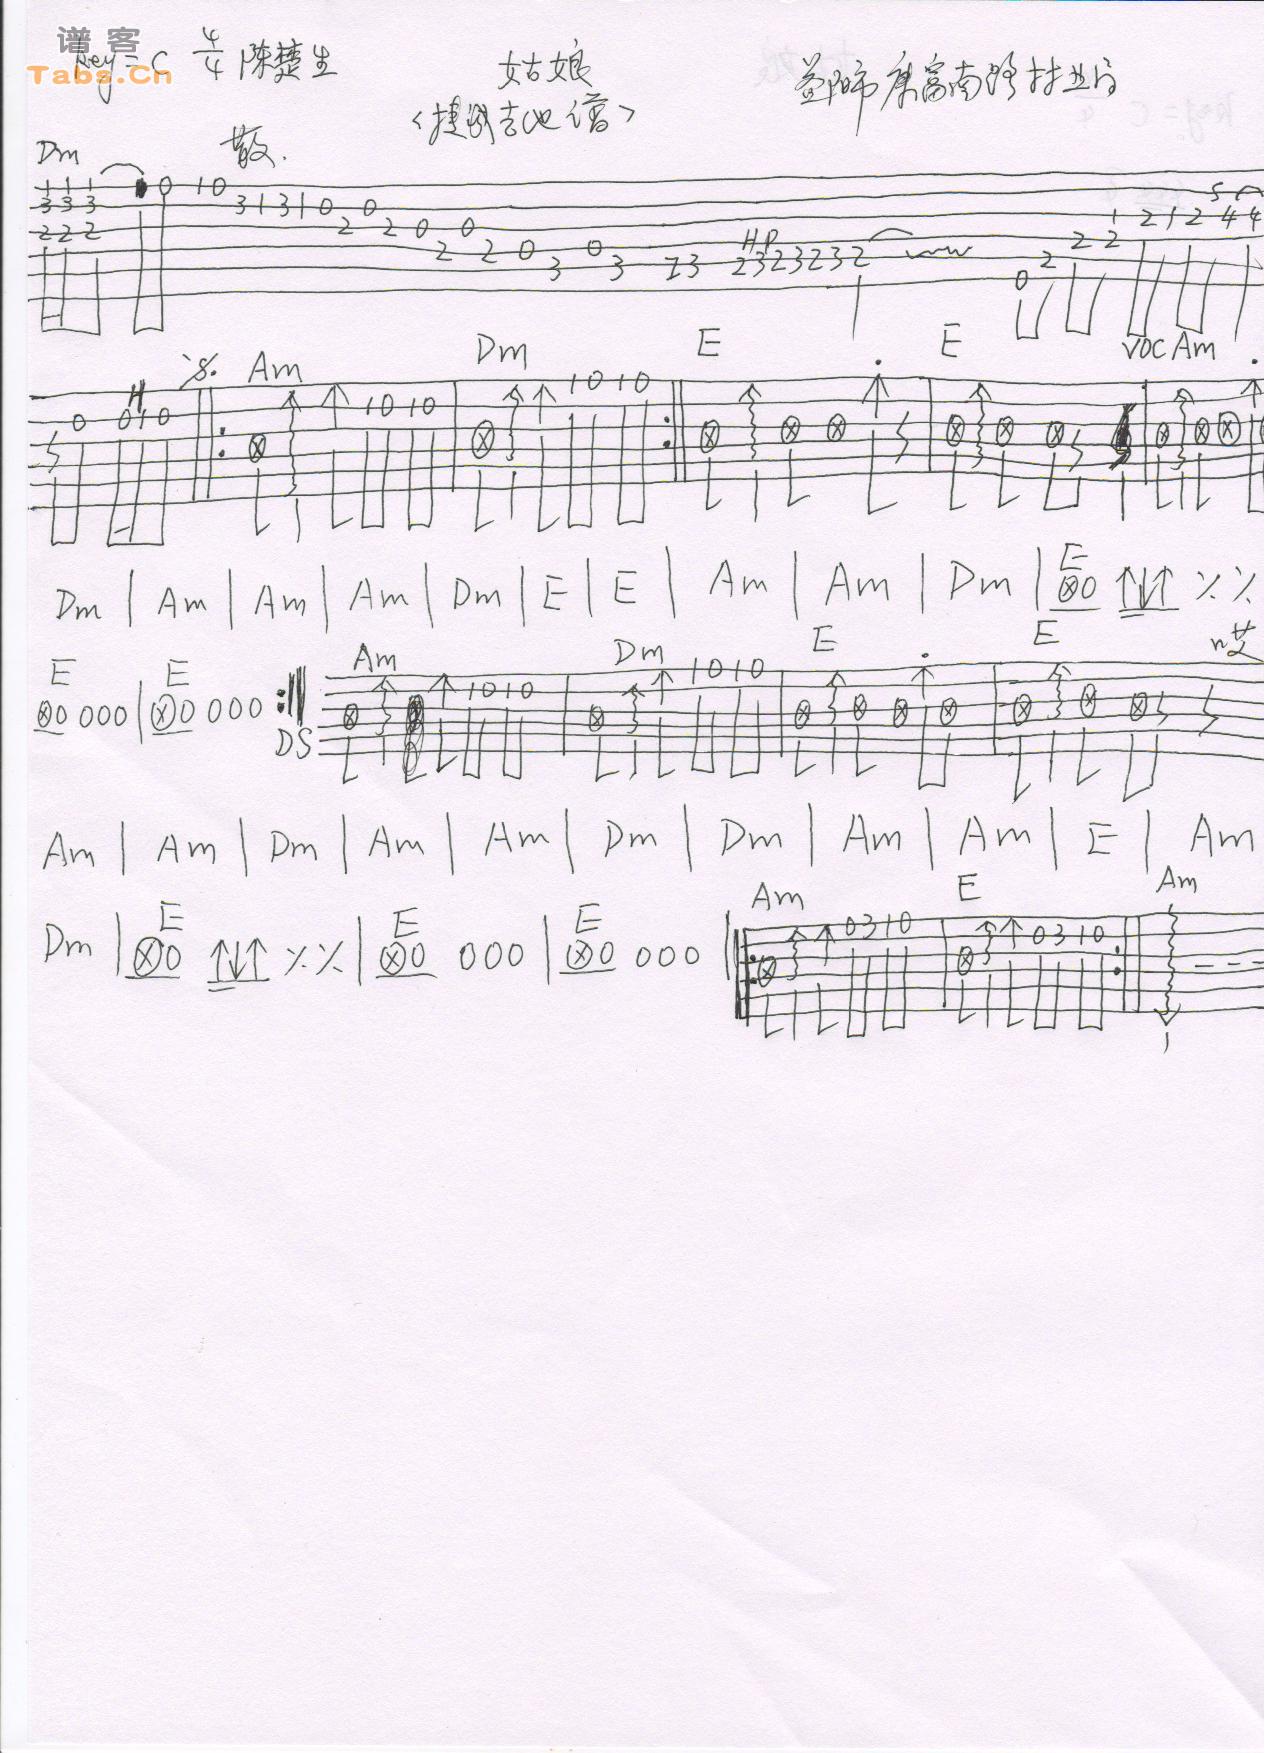 谱客
Tabs.Cn
Key=C 4/4 陈楚生 姑娘
散.
Dm
1 1 1 0 1 0
3 3 3 3 1 3 1 0 0
2 2 2 2 2 0 0
2 2 0 0
3 3 2 3 2 3 2 3 2 3 2
H P
0 2 2 1 2 2 1 2 4 4
S
Am Dm E E VOC Am
H
0 0 1 0 1 0 1 0 1 0 1 0
Dm | Am | Am | Am | Dm | E | E | Am | Am | Dm | E
E E Am Dm E E
0 000 | 0 000
1 0 1 0 1 0 1 0
DS
Am | Am | Dm | Am | Am | Dm | Dm | Am | Am | E | Am
Dm | E | E | E Am E Am
0 0 000 0 000
0 3 1 0 0 3 1 0